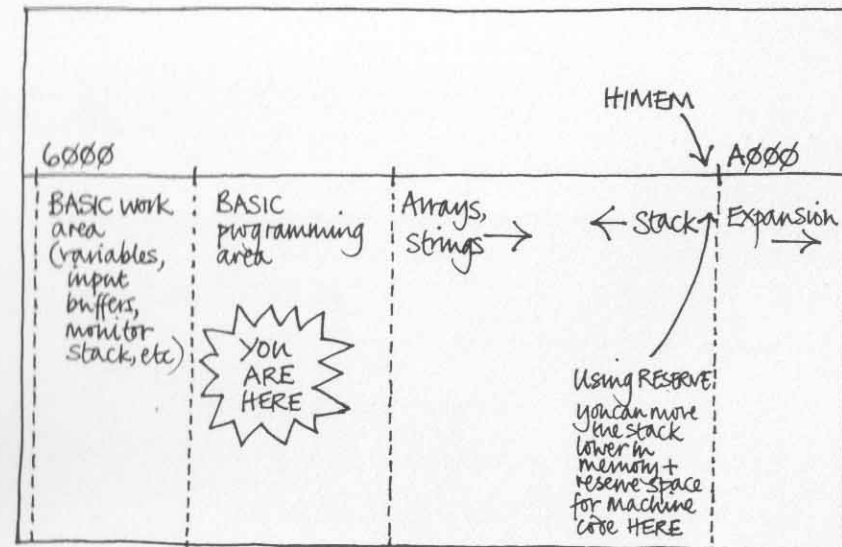 HIMEM
6000
A000
BASIC work
area
(variables,
input
buffers,
monitor
stack, etc)
BASIC
programming
area
YOU
ARE
HERE
Arrays,
Strings →
← Stack
Expansion
→
Using RESERVE
you can move
the stack
lower in
memory +
reserve space
for machine
code HERE